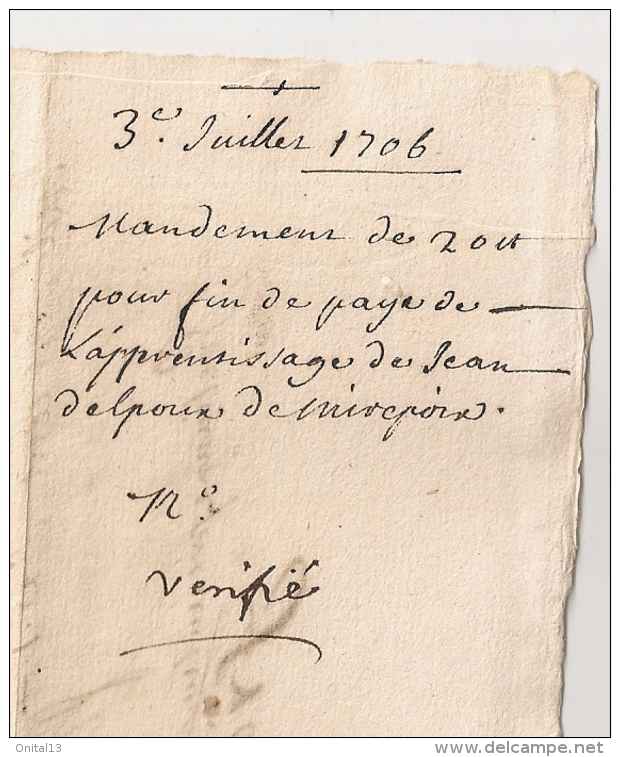 3e. Juillet 1706
Mandement de 20 tt
pour fin de paye de
L'apprentissage de Jean
delpoux de mirepoix.
No.
verifié
Onital13
www.delcampe.net